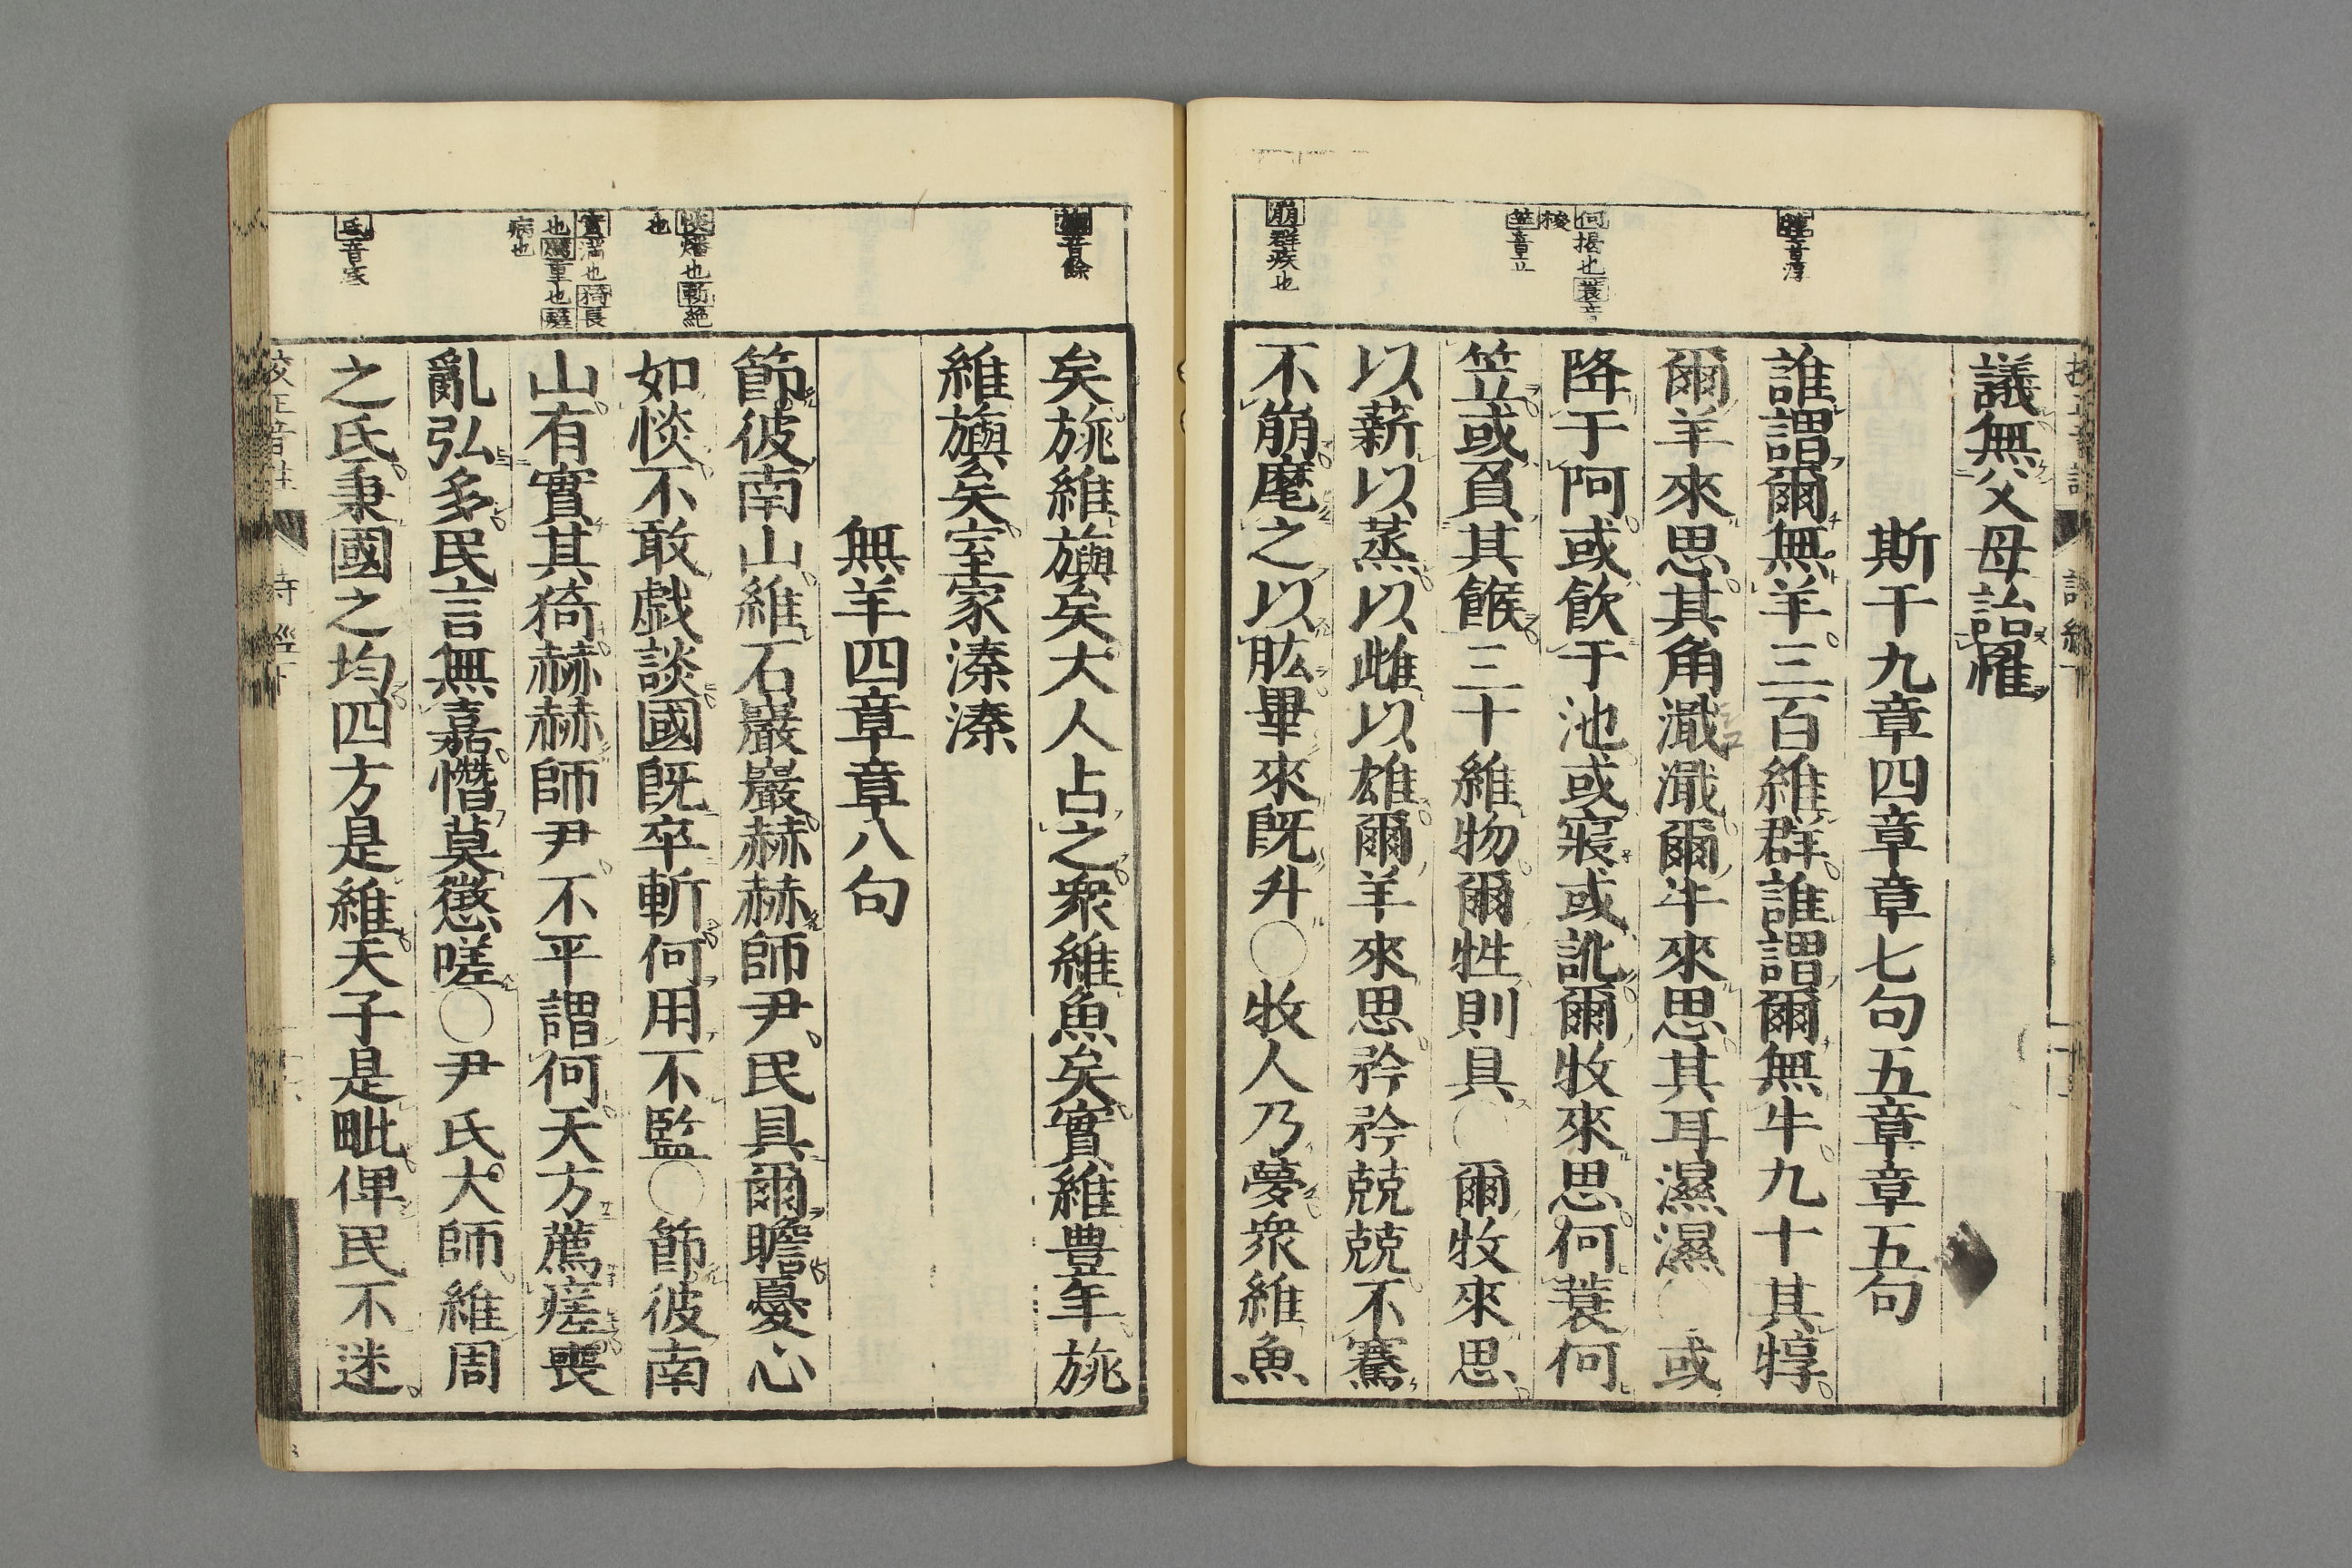 犉音淳
何掲也蓑音
梭
笠音立
崩群疾也
議無父母詒罹
斯干九章四章章七句五章章五句
誰謂爾無羊三百維群誰謂爾無牛九十其犉
爾羊來思其角濈濈爾牛來思其耳濕濕〇或
降于阿或飲于池或寢或訛爾牧來思何蓑何
笠或負其餱三十維物爾牲則具〇爾牧來思
以薪以蒸以雌以雄爾羊來思矜矜兢兢不騫
不崩麾之以肱畢來既升〇牧人乃夢衆維魚
旟音餘
惔燔也斬絶
也
實滿也猗長
也薦重也瘥
病也
氐音底
矣旐維旟矣大人占之衆維魚矣實維豊年旐
維旟矣室家溱溱
無羊四章章八句
節彼南山維石巖巖赫赫師尹民具爾瞻憂心
如惔不敢戯談國既卒斬何用不監〇節彼南
山有實其猗赫赫師尹不平謂何天方薦瘥喪
亂弘多民言無嘉憯莫懲嗟〇尹氏大師維周
之氐秉國之均四方是維天子是毗俾民不迷
校正音註 詩經下